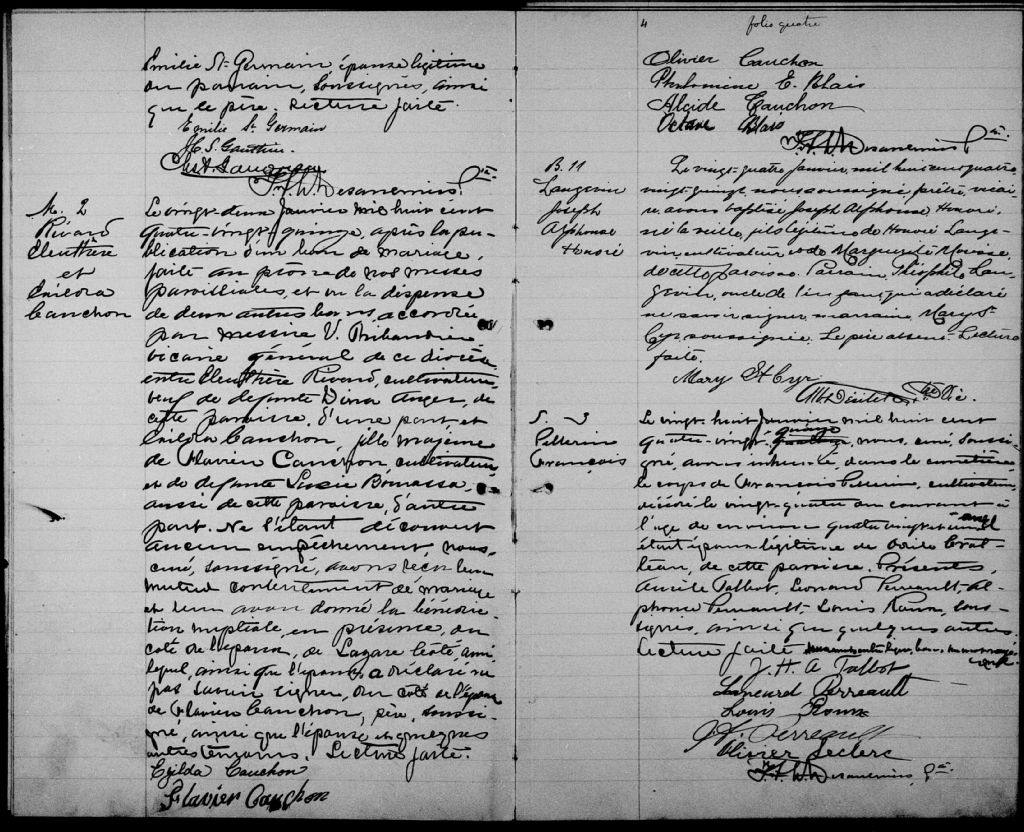 Emilie St Germain épouse légitime
du parrain, soussignés, ainsi
que le père. Lecture faite.
Emilie St. Germain
H. S. Gauthier
Desaneniers Ptre
M. 2
Rivard
Eleuthère
et
Exilda
Cauchon
Le vingt-deux Janvier mil huit cent
quatre-vingt-quinze, après la pu-
blication d'un ban de mariage,
faite au prône de nos messes
paroissiales, et vu la dispense
de deux autres bans accordée
par messire V. Thibaudier
vicaire général de ce diocèse
entre Eleuthère Rivard, cultivateur,
veuf de défunte Dina Auger, de
cette paroisse, d'une part, et
Exilda Cauchon, fille majeure
de Flavien Cauchon, cultivateur
et de défunte Lucie Bourassa,
aussi de cette paroisse, d'autre
part. Ne s'étant découvert
aucun empêchement, nous,
curé, soussigné, avons reçu leur
mutuel consentement de mariage
et leur avons donné la bénédic-
tion nuptiale, en présence, du
côté de l'époux, de Lazare Coté, ami,
lequel, ainsi que l'époux, a déclaré ne
pas savoir signer, du coté de l'épouse
de Flavien Cauchon, père, soussi-
gné, ainsi que l'épouse et quelques
autres témoins. Lecture faite.
Exilda Cauchon
Flavier Cauchon
4
folio quatre
Olivier Cauchon
Philomene E. Blais
Alcide Cauchon
Octave Blais
Desaneniers Ptre
B. 11
Langevin
Joseph
Alphonse
Honoré
Le vingt-quatre janvier, mil huit cent quatre
vingt-quinze, nous soussigné, prêtre, vicai-
re, avons baptisé Joseph Alphonse Honoré,
né la veille, fils légitime de Honoré Lange-
vin, cultivateur et de Marguerite
de cette paroisse. Parrain, Théophile Lan-
gevin, oncle de l'enfant, qui a déclaré
ne savoir signer, marraine, Mary St
Cyr, soussignée. Le père absent. Lecture
faite.
Mary St Cyr
Ptre Vic.
S. 3
Pellerin
François
Le vingt-huit Janvier mil huit cent
quatre-vingt-quinze, nous, curé, soussi-
gné, avons inhumé, dans le cimetière
le corps de François Pellerin, cultivateur,
décédé le vingt-quatre du courant à
l'age de environ quatre vingt-un ans
étant époux légitime de Odile Croteau,
de cette paroisse. Présents,
Aurèle Talbot, Léonard Perreault, Al-
phonse Perreault, Louis Roux, sous-
signés, ainsi que quelques autres.
Lecture faite
J. H. A Talbot
Leonard Perreault
Louis Roux
Perreault
Olivier Leclerc
Desaneniers Ptre